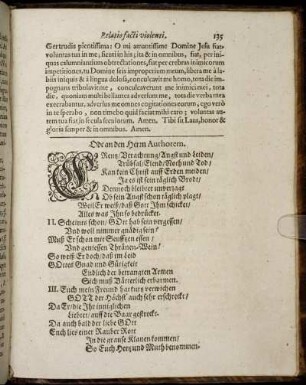 Relatio facti violenti. 135
Gertrudis pientissima: O mi amantissime Domine Jesu fiat
voluntas tua in me, sicut in his, ita & in omnibus, fiat, per ini-
quas calumniantium obtrectationes, fiat per crebras inimicorum
impetitiones, tu Domine scis improperium meum, libera me à la-
biis iniquis & à lingua dolosa, conculcavit me homo, tota die im-
pugnans tribulavit me, conculcaverunt me inimici mei, tota
die, quoniam multi bellantes adversum me, tota die verba mea
execrabantur, adversum me omnes cogitationes eorum, ego verò
in te sperabo, non timebo quid faciat mihi caro; voluntas au-
tem tua fiat, in secula seculorum. Amen. Tibi sit Laus, honor &
gloria semper & in omnibus. Amen.
Ode an den Herrn Authorem.
CReutz, Verachtung, Angst und Leiden,
Trübsal, Elend, Noth und Tod,
Kan kein Christ auff Erden meiden,
Ja es ist sein täglich Brodt,
Dennoch bleibet unverzagt
Ob sein Angst schon täglich plagt,
Weil Er weiß, daß Gott Ihm schicket,
Alles was Ihn so bedrücket.
II. Scheinets schon, GOtt hab sein vergessen,
Und woll nimmer gnädig seyn,
Muß Er schon mit Seufftzen essen,
Und geniessen Thränen-Wein,
So weiß Er doch, daß im Leid
GOttes Gnad und Gütigkeit
Endlich der betrangten Armen
Sich muß Vätterlich erbarmen.
III. Euch mein Freund hat kurtz verwichen
GOTT der Höchst auch sehr erschrökt,
Da Er die Ihr inniglichen
Liebet, auff die Baar gestrekt.
Da auch bald der liebe GOtt
Euch ließ einer Rauber Rott
In die grause Klauen kommen,
So Euch Hertz und Muth benommen.